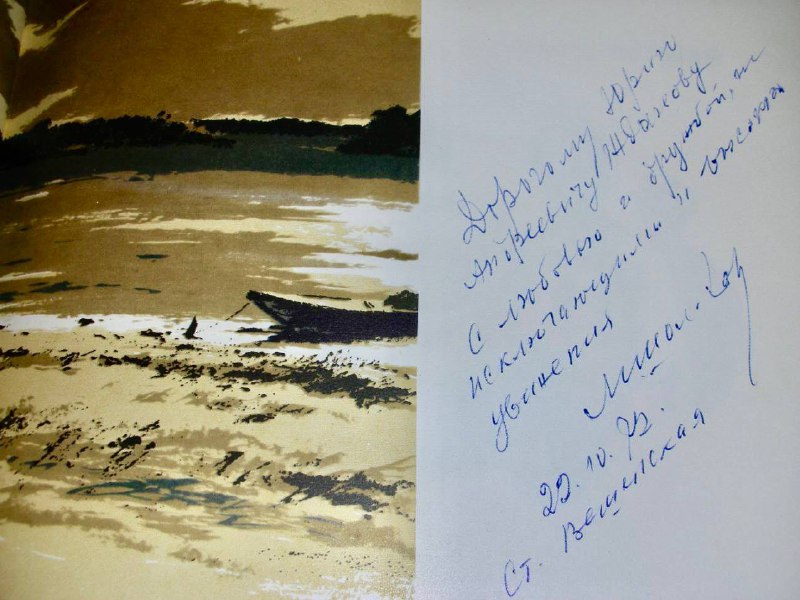 Дорогому Юрию
Андреевичу Жданову
С любовью и дружбой, не
исключающими и высокого
уважения
М. Шолохов
22.10.75.
Ст. Вешенская